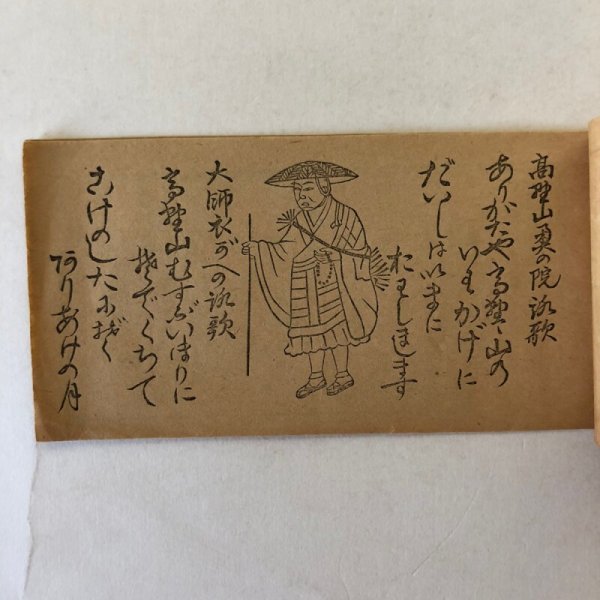 高野山奥の院詠歌
ありがたや高野山の
いわかげに
だいしはいまに
おわしまします
大師衣がへの詠歌
高野山むすぶいほりに
袖でくちて
こけのしたにぞ
ありあけの月